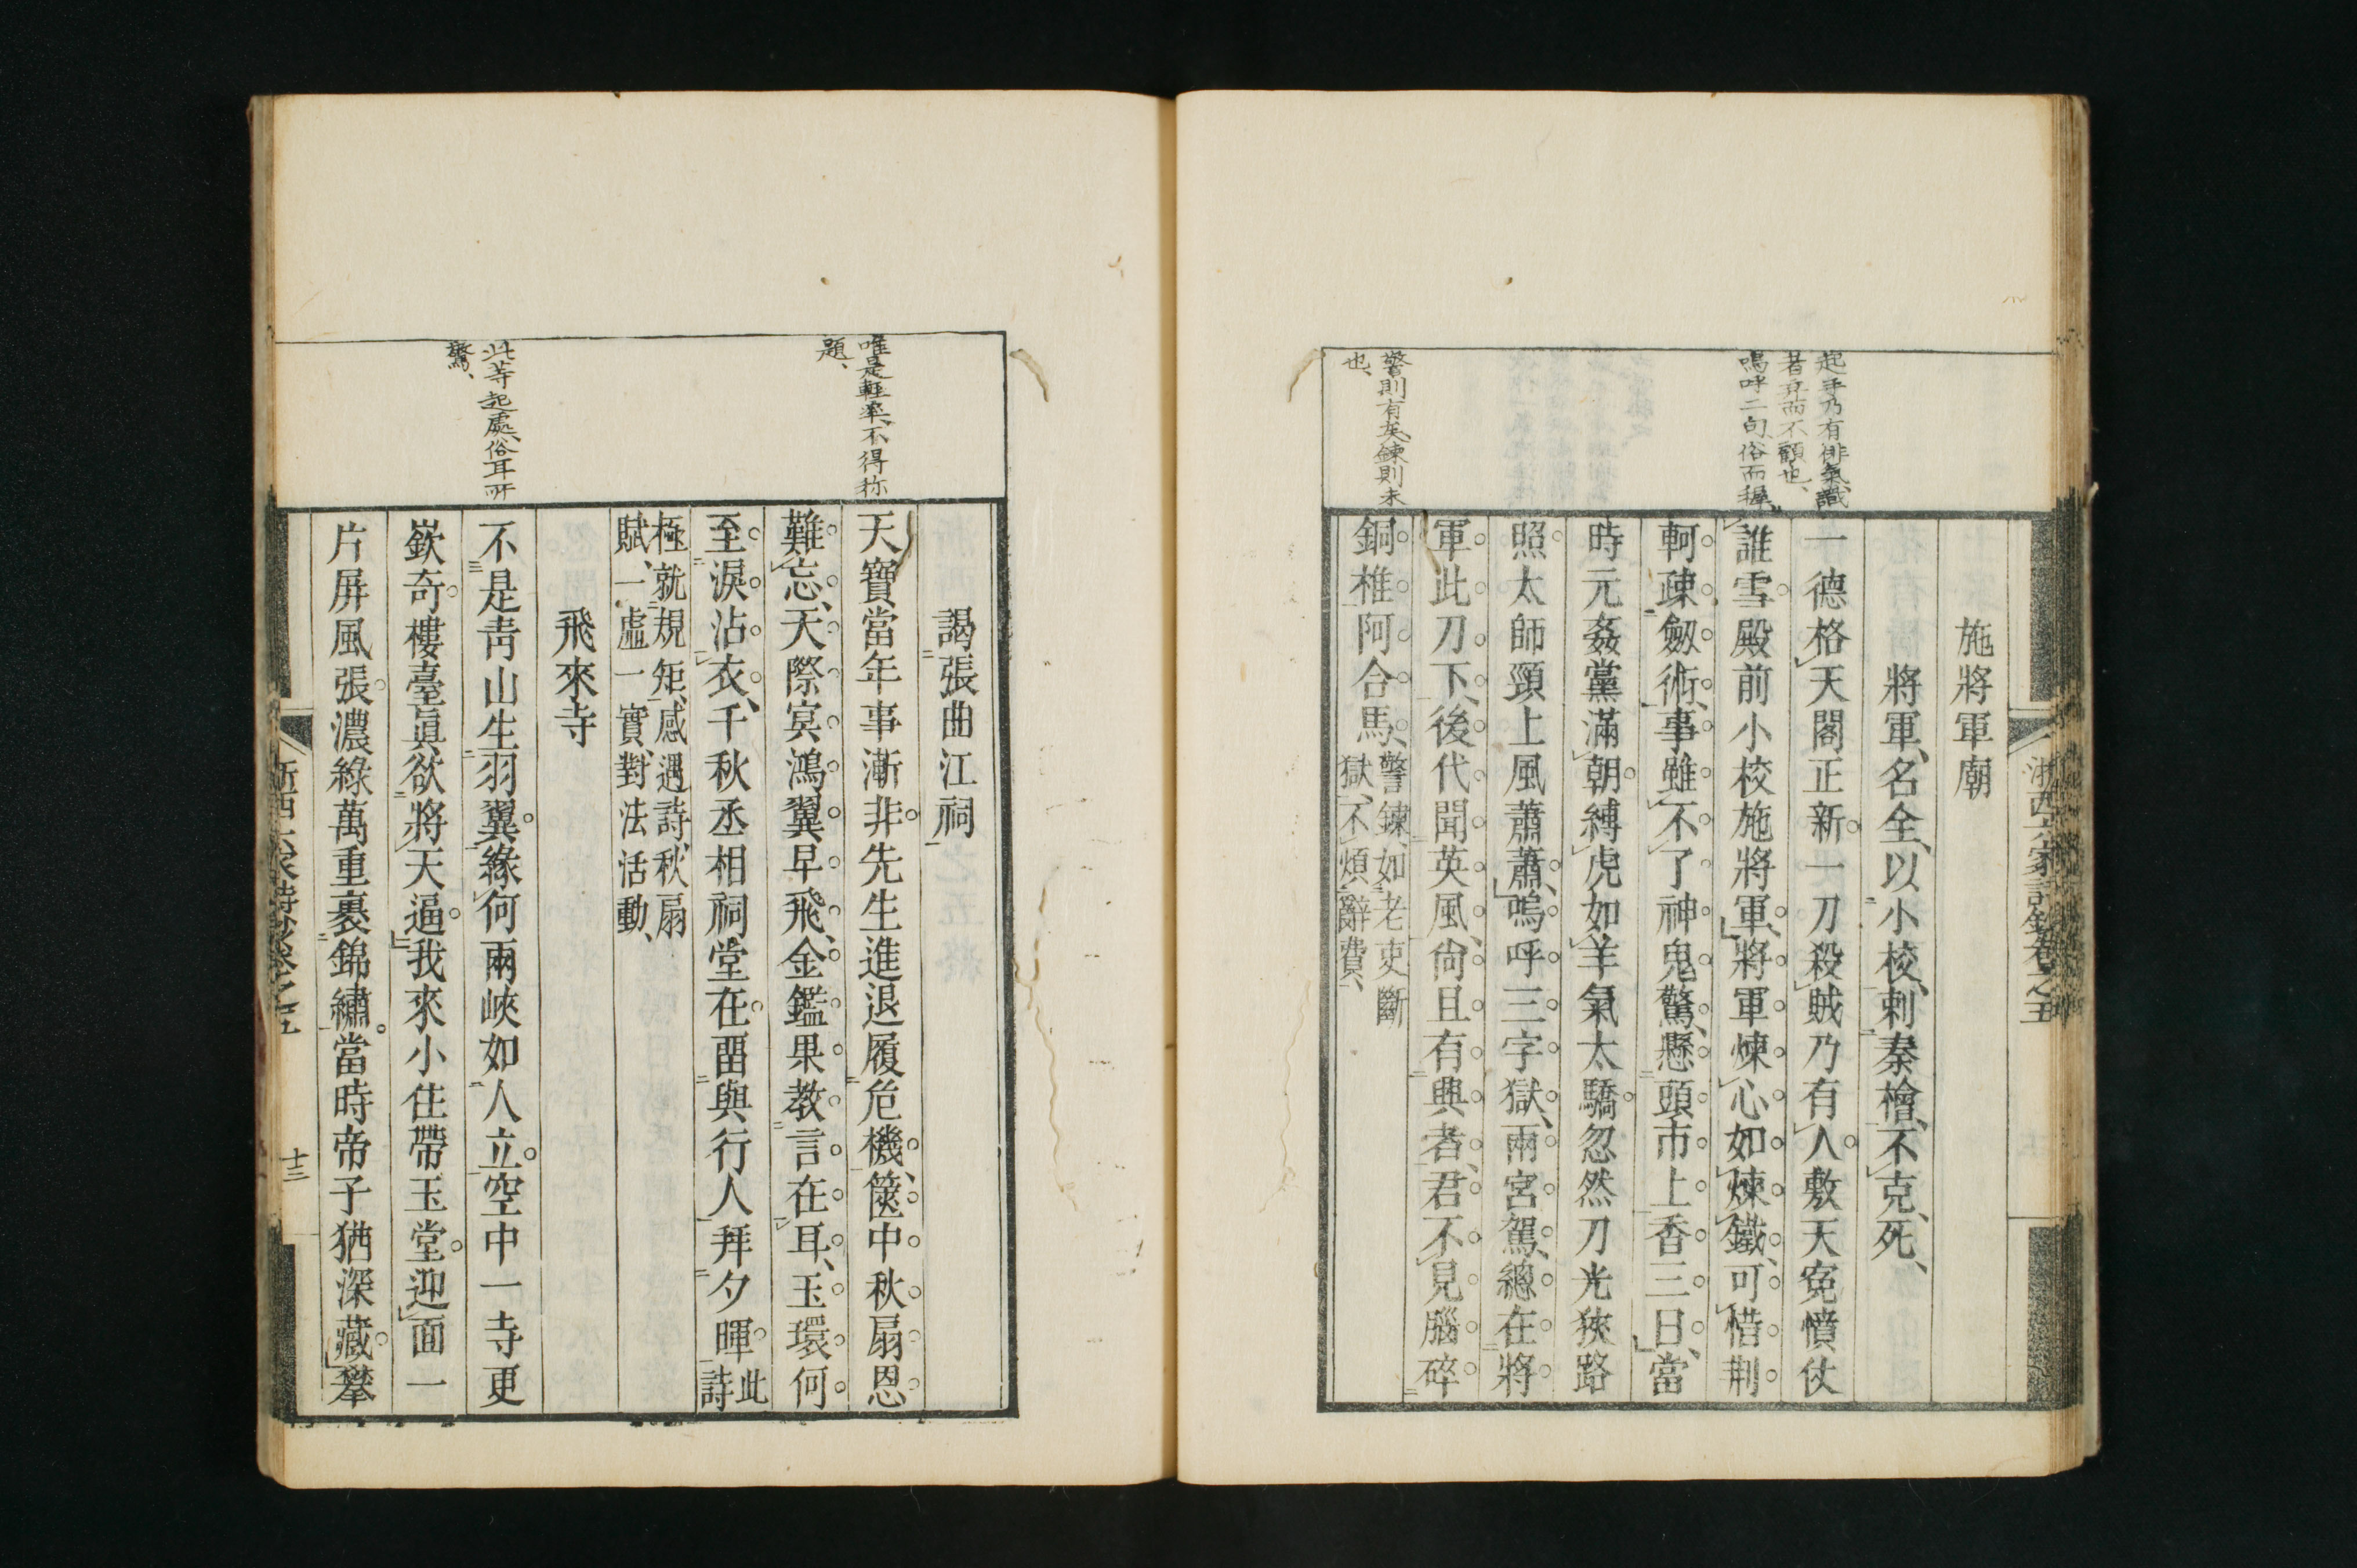 浙西六家詩鈔卷之五
起手乃有俳氣、識
者弃而不顧也、
嗚呼二句、俗而穉、
警則有矣、鍊則未
也、
施將軍廟
將軍、名全、以小校、刺秦檜、不克、死、
一德格天閣正新一刀殺賊乃有人敷天寃憤仗
誰雪殿前小校施將軍、將軍煉心如煉鐵、可惜荆
軻疎劔術、事雖不了神鬼驚、懸頭市上香三日、當
時元姦黨滿朝縛虎如羊氣太驕忽然刀光狹路
照太師頸上風蕭蕭、嗚呼三字獄、兩宮駕、總在將
軍此刀下、後代聞英風、尙且有興者、君不見腦碎
銅椎阿合馬、警鍊、如老吏斷
獄、不煩辭費、
唯是輕率、不得称
題、
此等起處、俗耳所
驚、
謁張曲江祠
天寶當年事漸非先生進退履危機、篋中秋扇恩
難忘、天際㝠鴻翼早飛、金鑑果教言在耳、玉環何
至淚沾衣、千秋丞相祠堂在畱與行人拜夕暉此
詩
極就規矩、感遇詩、秋扇
賦、一虛一實、對法活動、
飛來寺
不是靑山生羽翼緣何兩峽如人立空中一寺更
嶔奇樓臺眞欲將天逼我來小住帶玉堂迎面一
片屏風張濃綠萬重裹錦繡當時帝子猶深藏攀
浙西六家詩鈔卷之五
十三